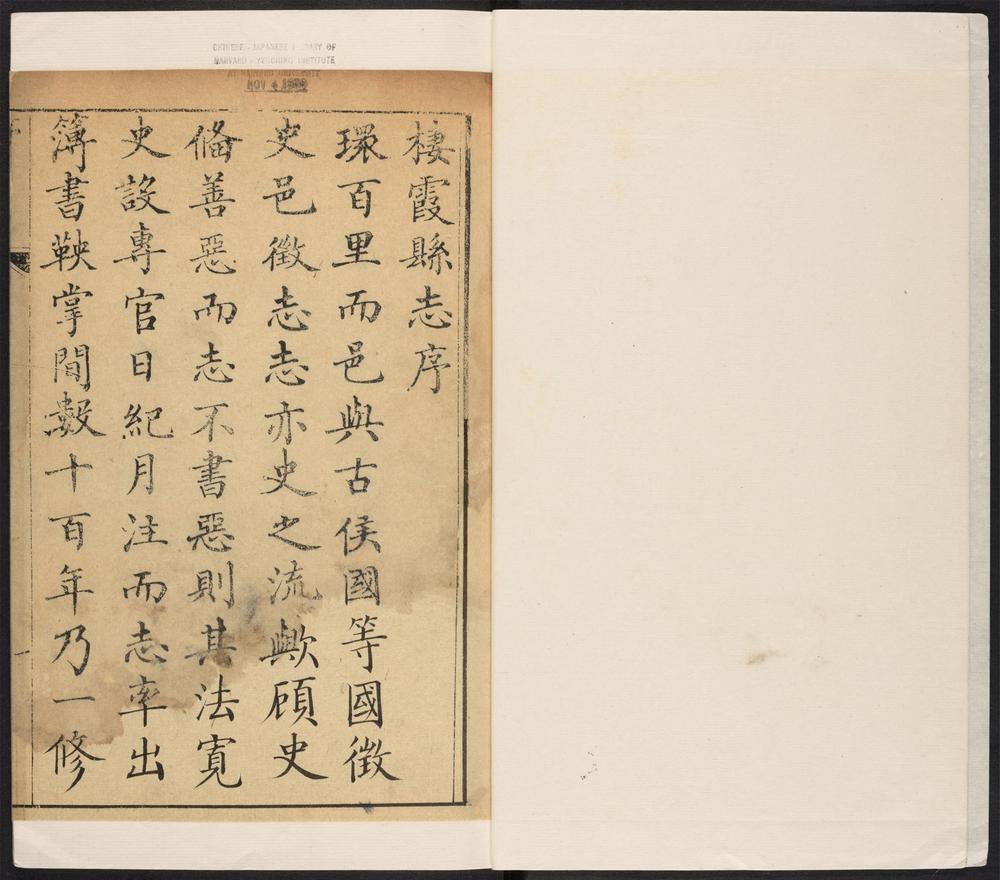 CHINESE - JAPANESE LIBRARY OF
HARVARD - YENCHING INSTITUTE
AT HARVARD UNIVERSITY
NOV 4
棲霞縣志序
環百里而邑與古侯國等國徵
史邑徵志志亦史之流歟顧史
俻善惡而志不書惡則其法寬
史設專官日紀月注而志率出
簿書鞅掌間數十百年乃一修
一